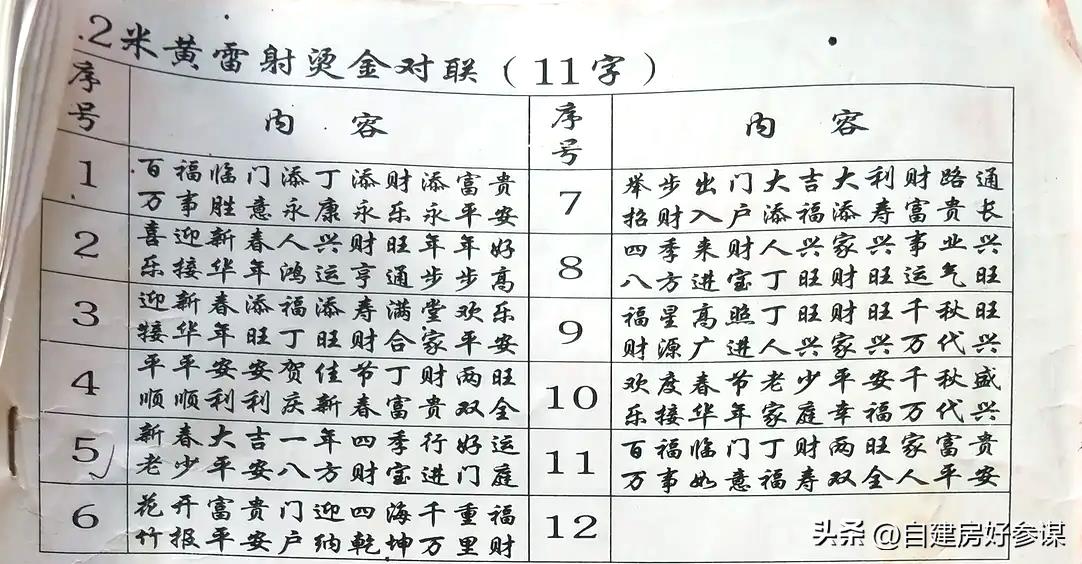 .2米黄雷射烫金对联（11字）
序号 内容 序号 内容
1 百福临门添丁添财添富贵
万事胜意永康永乐永平安
2 喜迎新春人兴财旺年年好
乐接华年鸿运亨通步步高
3 迎新春添福添寿满堂欢乐
接华年旺丁旺财合家平安
4 平平安安贺佳节丁财两旺
顺顺利利庆新春富贵双全
5 新春大吉一年四季行好运
老少平安八方财宝进门庭
6 花开富贵门迎四海千重福
竹报平安户纳乾坤万里财
7 举步出门大吉大利财路通
招财入户添福添寿富贵长
8 四季来财人兴家兴事业兴
八方进宝丁旺财旺运气旺
9 福星高照丁旺财旺千秋旺
财源广进人兴家兴万代兴
10 欢度春节老少平安千秋盛
乐接华年家庭幸福万代兴
11 百福临门丁财两旺家富贵
万事如意福寿双全人平安
12
头条 @自建房好参谋